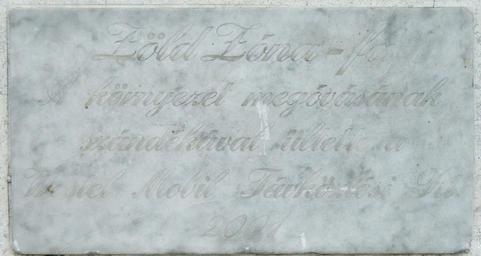 Zöld Zóna-fa
A környezet megóvásának
szándékával ültette a
Westel Mobil Távközlési Rt.